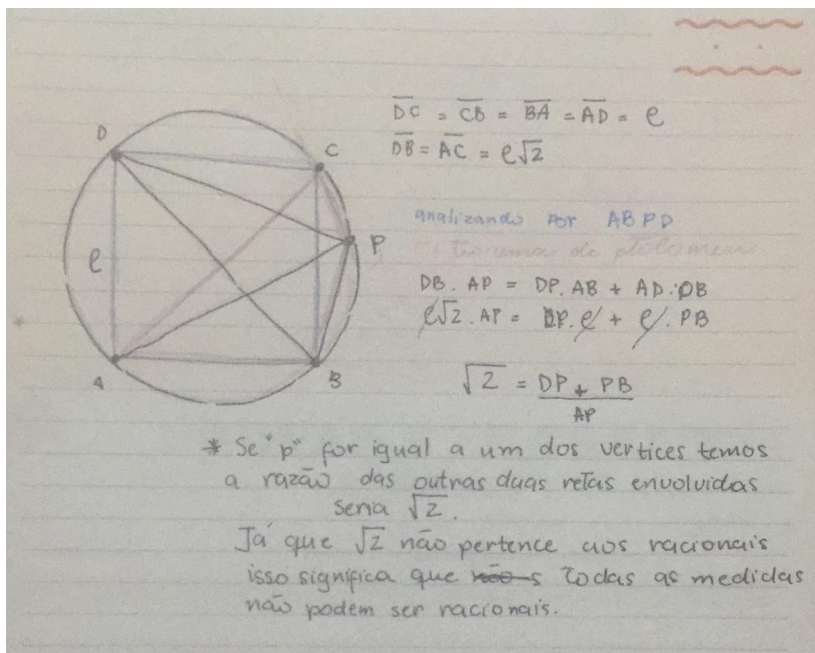 D
C
P
ℓ
A
B
DC = CB = BA = AD = ℓ
DB = AC = ℓ√2
analizando por ABPD
teorema de ptolomeu
DB . AP = DP . AB + AD . PB
ℓ√2 . AP = DP . ℓ + ℓ . PB
√2 = DP + PB
AP
* Se "p" for igual a um dos vertices temos
a razão das outras duas retas envolvidas
seria √2.
Já que √2 não pertence aos racionais
isso significa que não s todas as medidas
não podem ser racionais.